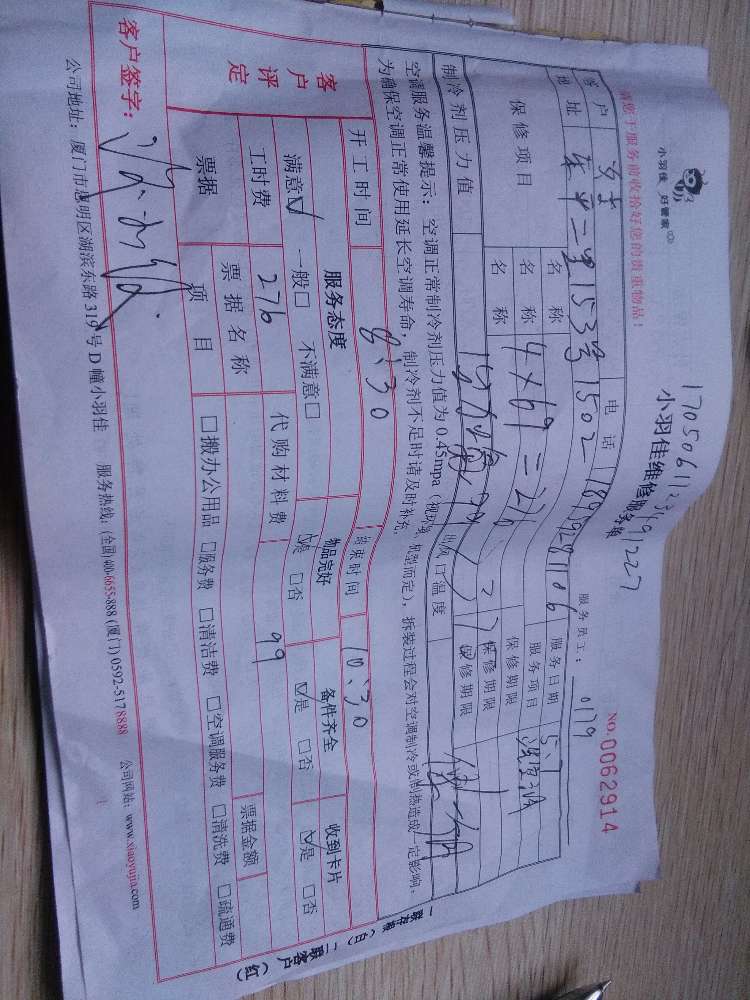 小羽佳 好管家
17050611231911227
小羽佳维修服务
NO.0062914
请您于服务前收拾好您的贵重物品！
服务员工： 0179
客户 电话 服务日期 5.7
地址 二里153号1502 服务项目
保修项目 名称 保修期限
名称 4×69=276 保修期限
名称 保修期限
制冷剂压力值 出风口温度
空调服务温馨提示：空调正常制冷剂压力值为0.45mpa（视环境、机型而定），拆装过程会对空调制冷或制热造成一定影响，
为确保空调正常使用延长空调寿命，制冷剂不足时请及时补充。
开工时间 8:30 结束时间 10:30
客户评定 服务态度 物品完好 备件齐全 收到卡片
满意☑ 一般□ 不满意□ ☑是 □否 ☑是 □否 ☑是 □否
工时费 276 代购材料费 99
票据 票据名称 票据金额
项目 □搬办公用品 □服务费 □清洁费 □空调服务费 □清洗费 □疏通费
客户签字：
公司地址：厦门市思明区湖滨东路319号D幢小羽佳 服务热线：(全国)400-6655-888 (厦门)0592-5178888 公司网站：www.xiaoyujia.com
一联存根（白） 二联客户（红）